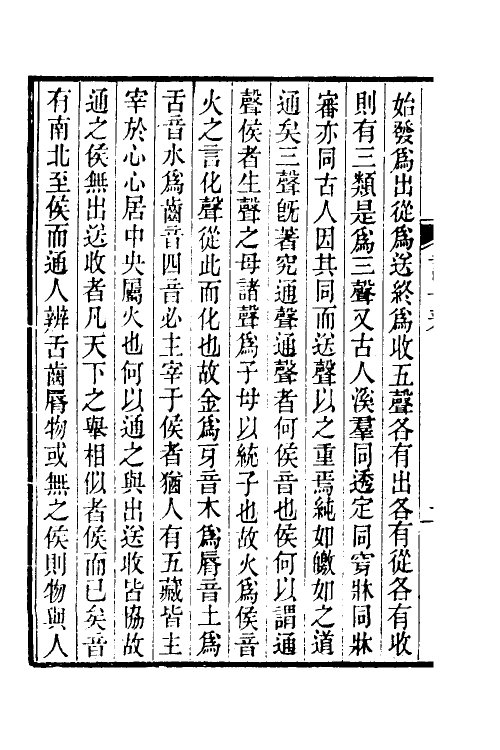 始發爲出從爲送終爲收五聲各有出各有從各有收
則有三類是爲三聲又古人溪羣同透定同穿牀同牀
審亦同古人因其同而送聲以之重焉純如皦如之道
通矣三聲旣著究通聲通聲者何侯音也侯何以謂通
聲侯者生聲之母諸聲爲子母以統子也故火爲侯音
火之言化聲從此而化也故金爲牙音木爲脣音土爲
舌音水爲齒音四音必主宰于侯者猶人有五藏皆主
宰於心心居中央屬火也何以通之與出送收皆協故
通之侯無出送收者凡天下之舉相似者侯而已矣音
有南北至侯而通人辨舌齒脣物或無之侯則物與人